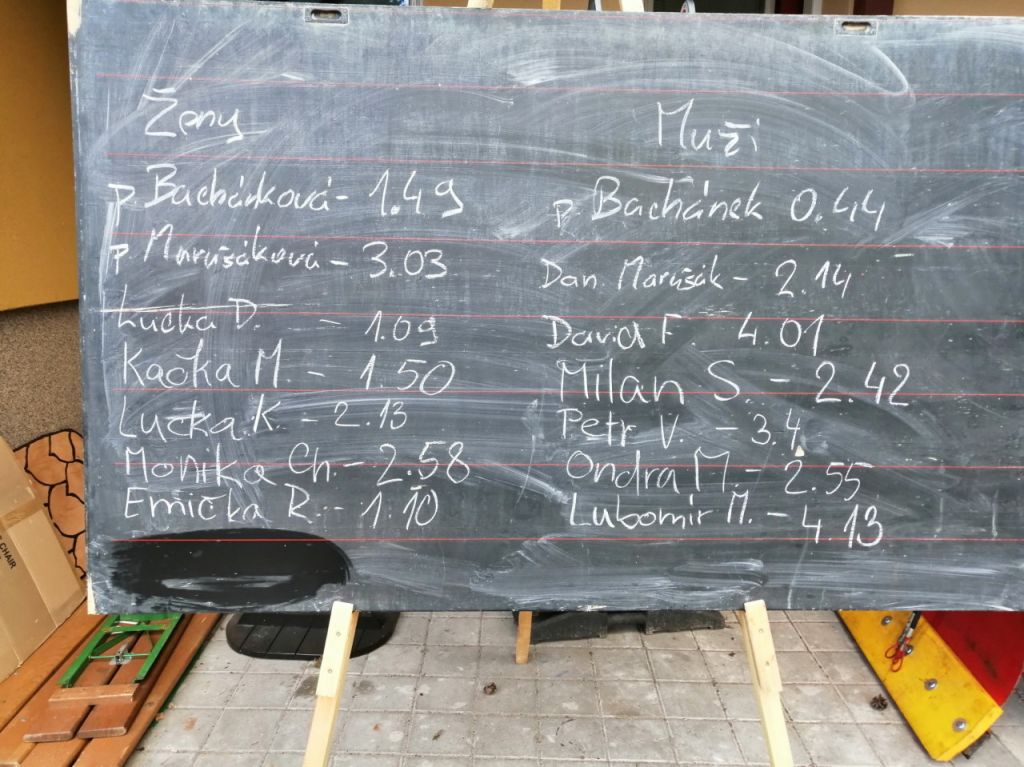 Ženy
p. Bachánková - 1.49
p. Marušáková - 3.03
Lucka D. - 1.09
Kačka M. - 1.50
Lucka K. - 2.13
Monika Ch. - 2.58
Emička R. - 1.10
Muži
p. Bachánek 0.44
Dan. Marušák - 2.14
David F. 4.01
Milan S. - 2.42
Petr V. - 3.4
Ondra M. - 2.55
Lubomír M. - 4.13
CHAIR